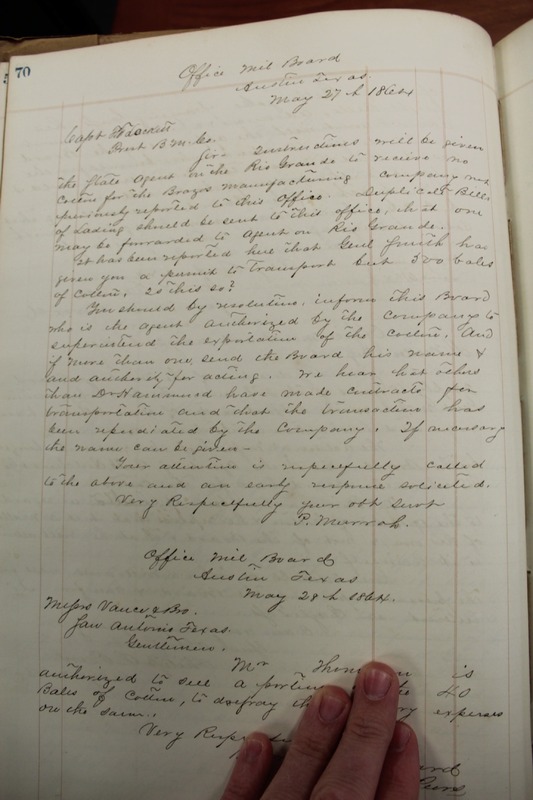 70
Office Mil Board
Austin Texas.
May 27th 1864
Capt
Prest B. M. Co.
Sir. Instructions will be given
the State Agent on the Rio Grande to receive no
Cotton for the Brazos Manufacturing Company not
previously reported to this Office. Duplicate Bills
of Lading should be sent to this office, that one
may be forwarded to Agent on Rio Grande.
It has been reported here that Genl Smith has
given you a permit to transport but 500 bales
of Cotton, Is this so?
You should by resolution, inform this Board
who is the agent authorized by the Company to
superintend the exportation of the cotton. And
if more than one, send the Board his name &
and authority for acting. We hear that others
than Dr Hammond have made contracts for
transportation and that the transaction has
been repudiated by the Company. If necessary
the name can be given -
Your attention is respectfully called
to the above and an early response solicited.
Very Respectfully your obt Servt
P. Murrah.
Office Mil Board
Austin Texas
May 28th 1864.
Messrs Vance & Bro.
San Antonio Texas.
Gentlemen.
Mr is
authorized to sell a portion 40
Bales of Cotton, to defray expenses
on the same.
Very